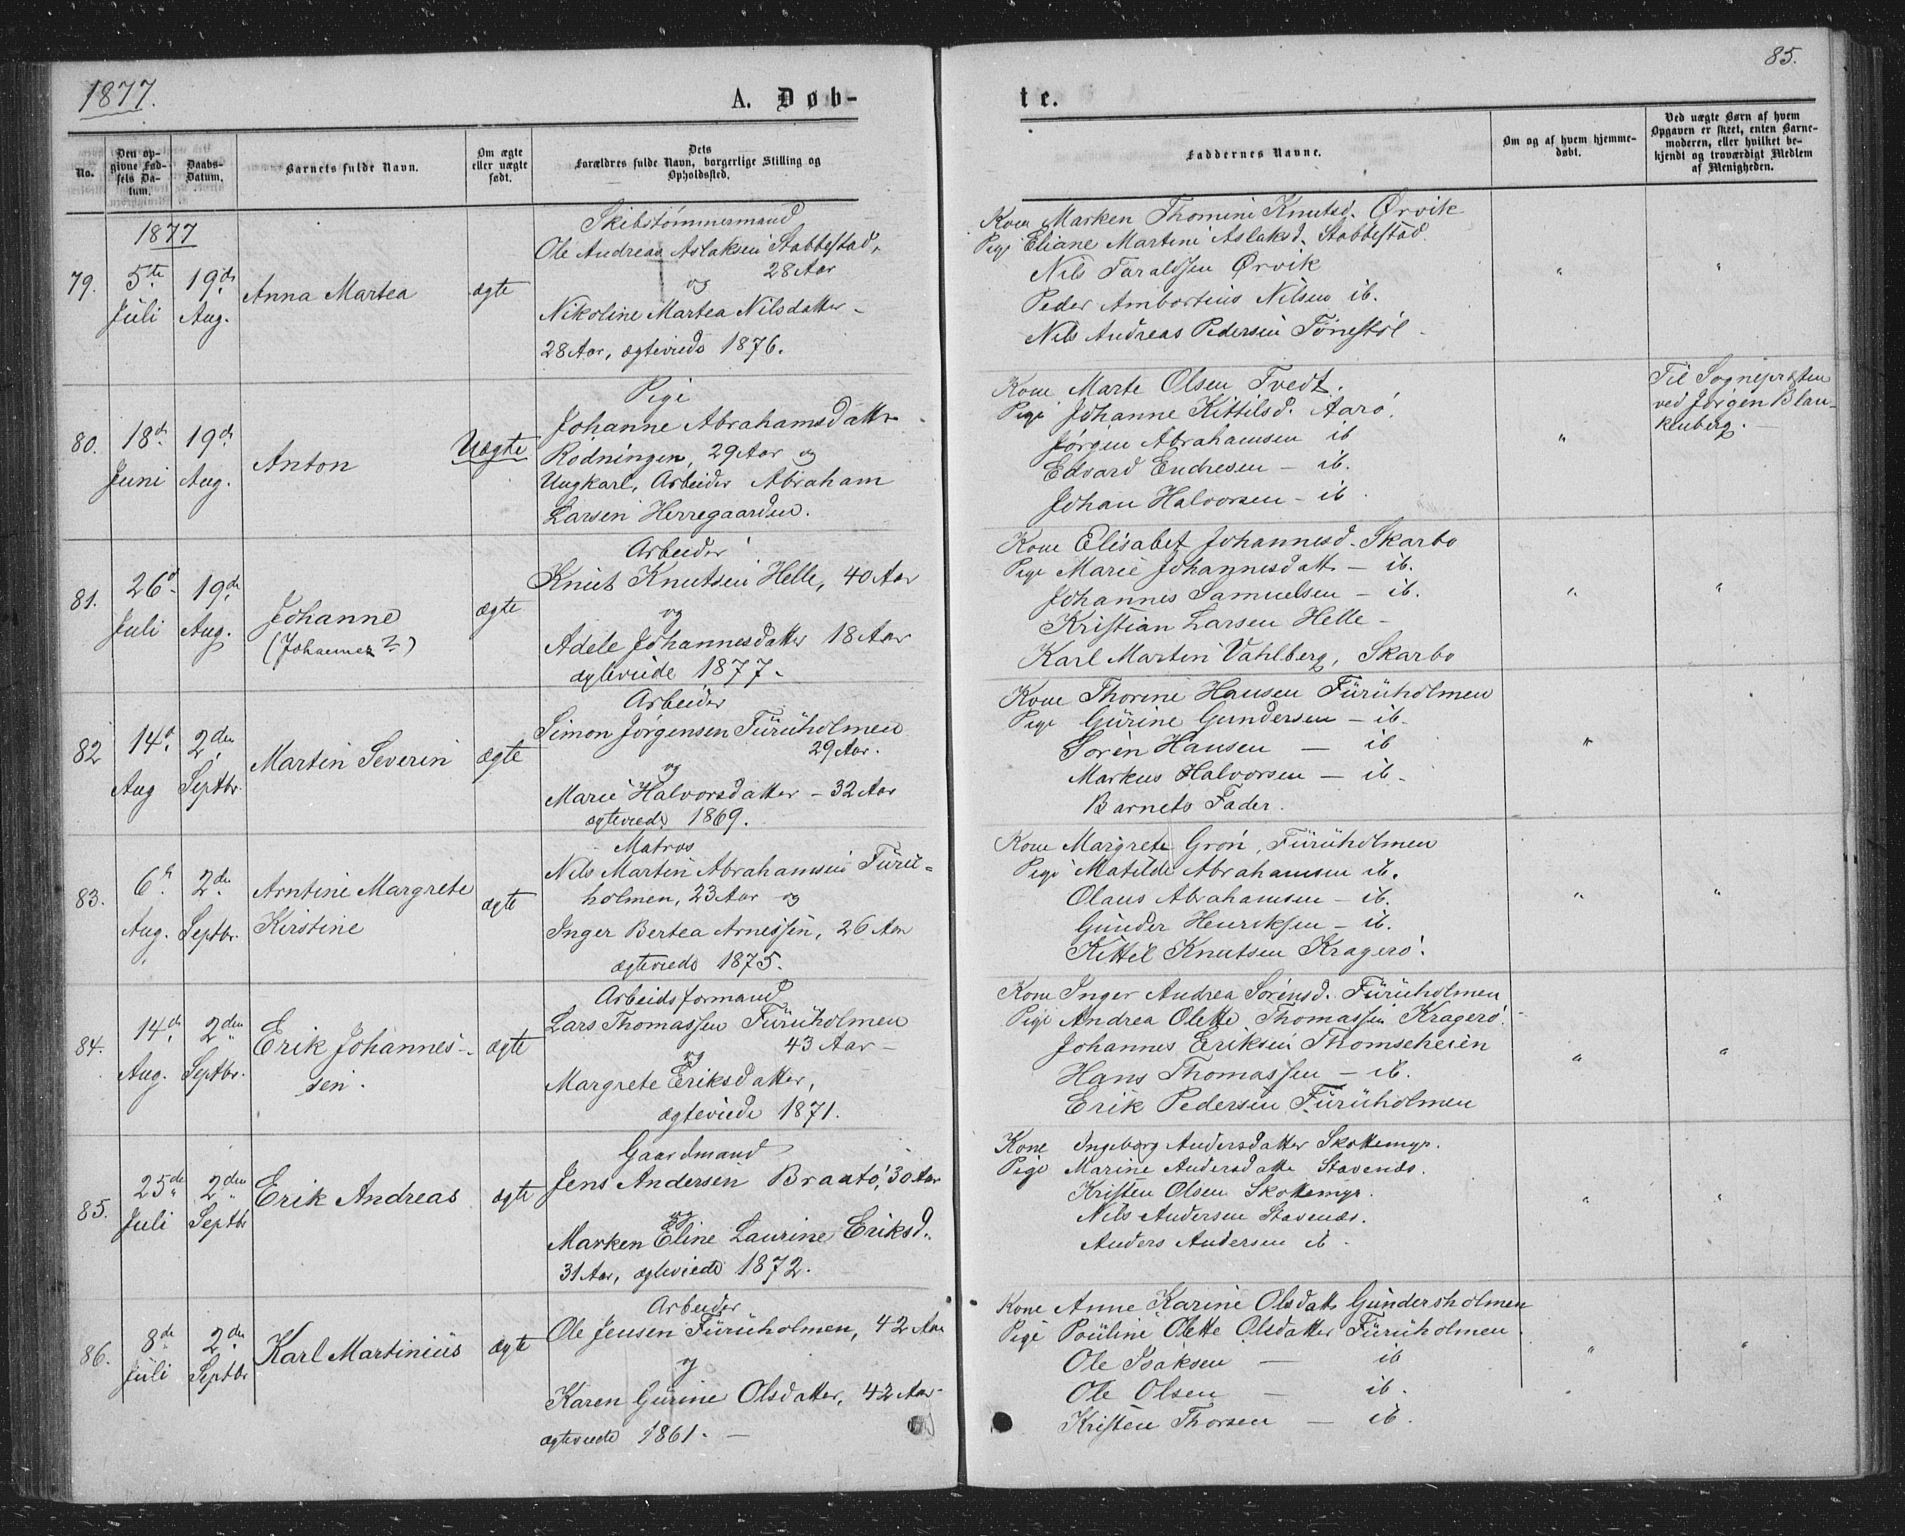 1877.
A. Døb-
te.
85.
No.
Den op-
givne Fød-
sels Da-
tum.
Daabs-
Datum.
Barnets fulde Navn.
Om ægte
eller uægte
født.
Dets
Forældres fulde Navn, borgerlige Stilling og
Opholdssted.
Faddernes Navne.
Om og af hvem hjemme-
døbt.
Ved uægte Børn af hvem
Opgaven er skeet, enten Barne-
moderen, eller hvilket be-
kjendt og troværdigt Medlem
af Menigheden.
1877
79.
5te
Juli
19de
Aug.
Anna Martea
ægte
Skibstømmermand
Ole Andreas Aslaksen Stabbestad,
28 Aar
og
Nikoline Martea Nilsdatter -
28 Aar, ægteviede 1876.
Kone Marken Thomine Knutsd. Ørvik
Pige Eliane Martine Aslaksd. Stabbestad.
Nils Taraldsen Ørvik
Peder Ambortius Nilsen ib.
Nils Andreas Pedersen Tønestøl -
"
"
80.
18de
Juni
19de
Aug.
Anton
Uægte
Pige
Johanne Abrahamsdatter
Rødningen, 29 Aar og
Ungkarl, Arbeider Abraham
Larsen Herregaarden.
Kone Marte Olsen Tvedt.
Pige Johanne Kittilsd. Aarø.
Jørgen Abrahamsen ib
Edvard Endresen - ib.
Johan Halvorsen - ib
"
Til Sognepræsten
ved Jørgen Blan-
kenberg. -
81.
26d
Juli
19de
Aug.
Johanne
(Johannes?)
ægte
Arbeider
Knut Knutsen Helle, 40 Aar
og
Adele Johannesdatter 18 Aar
ægteviede 1877.
Kone Elisabet Johannesd. Skarbo
Pige Marie Johannesdatt - ib.
Johannes Samuelsen - ib.
Kristian Larsen Helle -
Karl Martin Vahlberg, Skarbo
"
"
82
14d
Aug
2den
Septbr.
Martin Severin
ægte
Arbeider
Simon Jørgensen Furuholmen
29 Aar.
og
Marie Halvorsdatter - 32 Aar
ægteviede 1869.
Kone Thorine Hansen Furuholmen
Pige Gurine Gundersen - ib.
Søren Hansen - ib
Markus Halvorsen - ib.
Barnets Fader.
"
83.
6te
Aug.
2den
Septbr.
Arntine Margrete
Kirstine
ægte
Matros
Nils Martin Abrahamsen Furu-
holmen, 23 Aar og
Inger Bertea Arnessen, 26 Aar
ægteviede 1875.
Kone Margrete Grøn, Furuholmen
Pige Matilde Abrahamsen ib.
Olaus Abrahamsen - ib.
Gunder Henriksen - ib.
Kittil Knutsen Kragerø.
"
"
84.
14de
Aug.
2den
Septbr.
Erik Johannes-
sen.
ægte
Arbeidsformand
Lars Thomassen Furuholmen
43 Aar -
og
Margrete Eriksdatter,
ægteviede 1871.
Kone Inger Andrea Sørensd. Furuholmen
Pige Andrea Olette Thomassen Kragerø.
Johannes Eriksen Thomseheien
Hans Thomassen - ib.
Erik Pedersen Furuholmen
"
"
85.
25de
Juli
2den
Septbr
Erik Andreas
ægte
Gaardmand
Jens Andersen Braatø, 30 Aar
og
Marken Eline Laurine Eriksd.
31 Aar, ægteviede 1872.
Kone Ingeborg Andersdatter Skottemyr.
Pige Marine Andersdatte Stavenæs.
Kristen Olsen Skottemyr.
Nils Andersen Stavenæs.
Anders Andersen ib -
"
"
86.
8de
Juli
2den
Septbr
Karl Martinius
ægte
Arbeider
Ole Jensen Furuholmen, 42 Aar
og
Karen Gurine Olsdatter, 42 Aar-
ægteviede 1861. -
Kone Anne Karine Olsdatt Gundersholmen
Pige Pouline Olette Olsdatter Furuholmen.
Ole Isaksen - ib
Ole Olsen - ib.
Kristen Thorsen - ib.
"
"